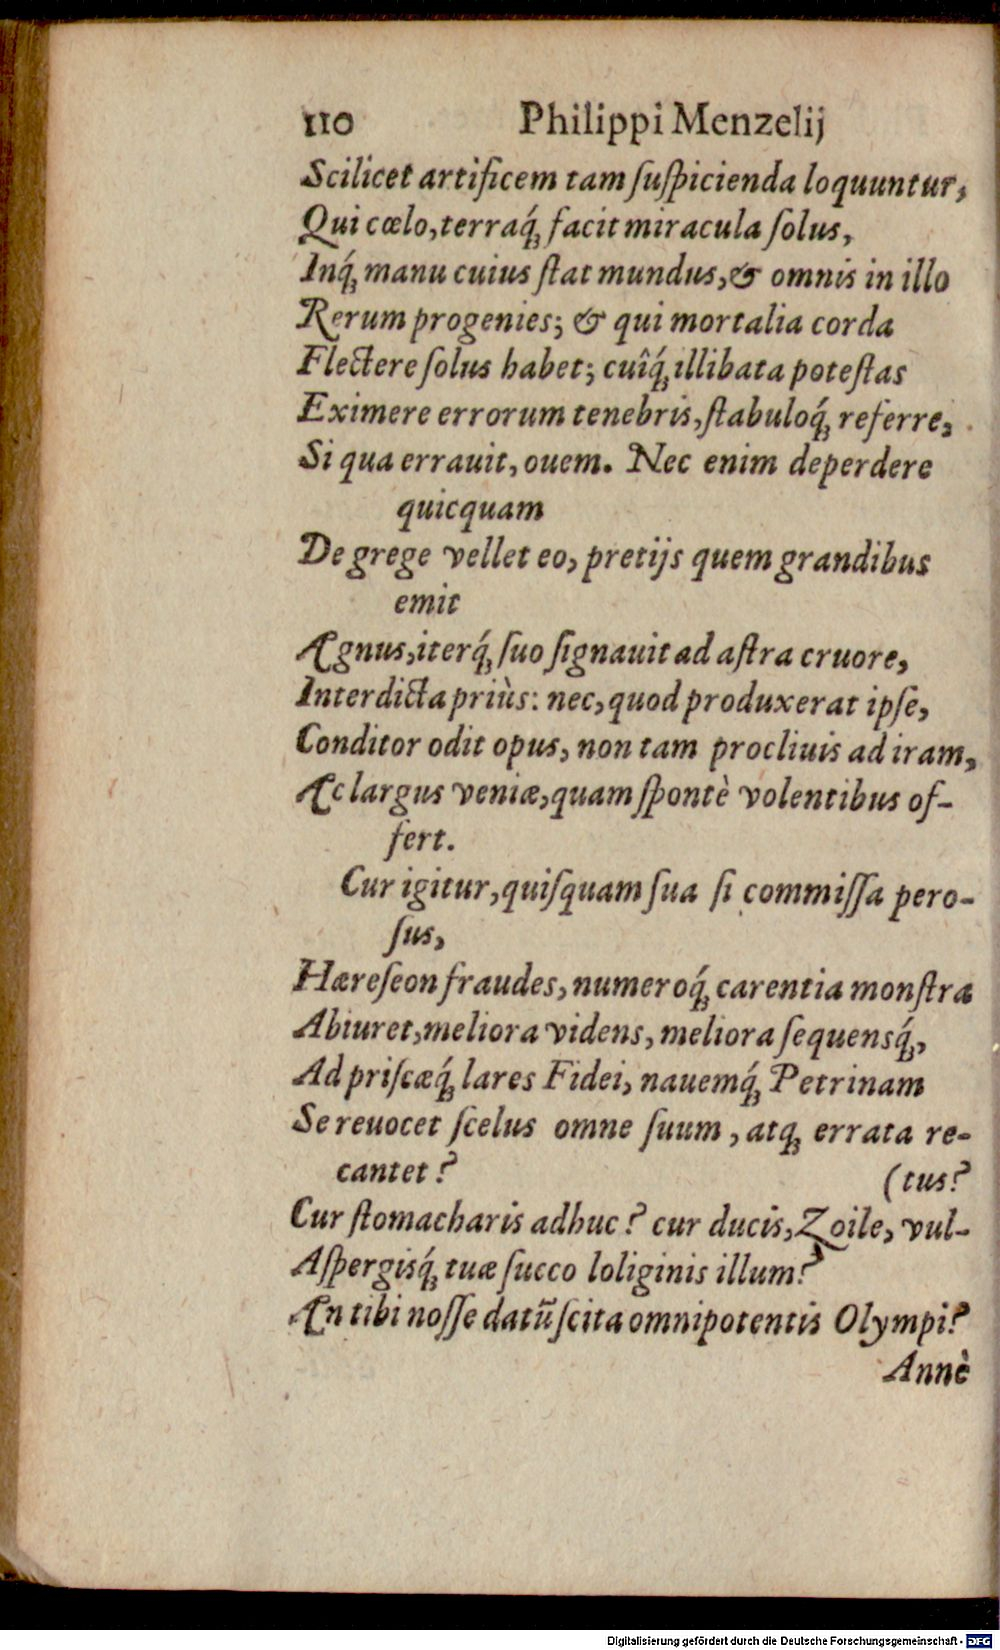 110 Philippi Menzelij
Scilicet artificem tam ſuſpicienda loquuntur,
Qui cœlo, terraq́; facit miracula ſolus,
Inq́; manu cuius ſtat mundus, & omnis in illo
Rerum progenies; & qui mortalia corda
Flectere ſolus habet; cuîq́; illibata poteſtas
Eximere errorum tenebris, ſtabuloq́; referre,
Si qua errauit, ouem. Nec enim deperdere
quicquam
De grege vellet eo, pretijs quem grandibus
emit
Agnus, iterq́; ſuo ſignauit ad aſtra cruore,
Interdicta priùs: nec, quod produxerat ipſe,
Conditor odit opus, non tam procliuis ad iram,
Ac largus veniæ, quam ſpontè volentibus of-
fert.
Cur igitur, quiſquam ſua ſi commiſſa pero-
ſus,
Hæreſeon fraudes, numeroq́; carentia monſtra
Abiuret, meliora videns, meliora ſequensq́;,
Ad priſcæq́; lares Fidei, nauemq́; Petrinam
Se reuocet ſcelus omne ſuum, atq; errata re-
cantet? (tus?
Cur ſtomacharis adhuc? cur ducis, Zoile, vul-
Aſpergisq́; tuæ ſucco loliginis illum?
An tibi noſſe datũ ſcita omnipotentis Olympi?
Annè
Digitalisierung gefördert durch die Deutsche Forschungsgemeinschaft - DFG